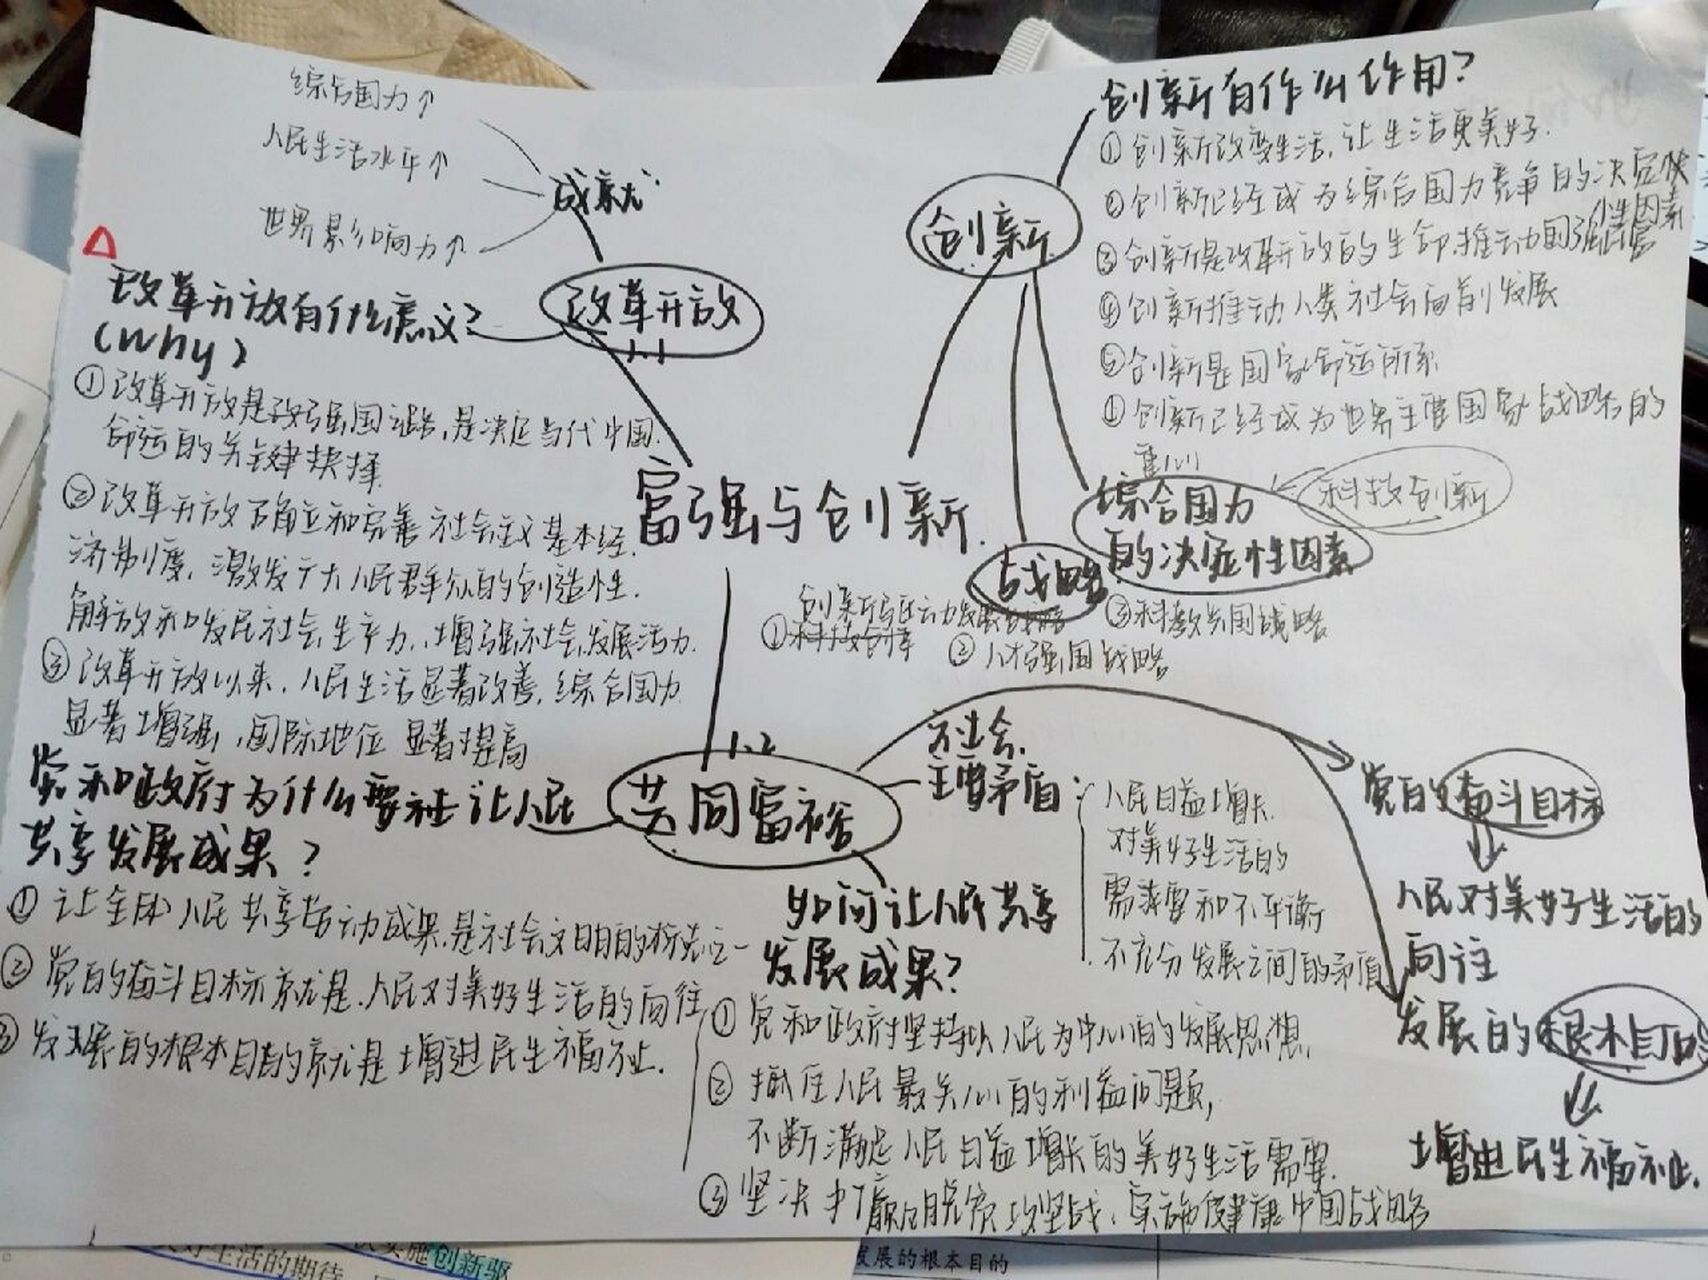 综合国力↑
人民生活水平↑
世界影响力↑
成就
改革开放
1.1
改革开放有什么意义?
(Why)
①改革开放是强国之路,是决定当代中国
命运的关键抉择
②改革开放确立和完善社会主义基本经
济制度,激发广大人民群众的创造性.
解放和发展社会生产力,增强社会发展活力.
③改革开放以来,人民生活显著改善,综合国力
显著增强,国际地位显著提高
富强与创新
创新
创新有什么作用?
①创新改变生活,让生活更美好.
②创新已经成为综合国力竞争的决定
性因素
③创新是改革开放的生命,推动国强
④创新推动人类社会向前发展
⑤创新是国家命运所系
创新已经成为世界主要国家战略的
重心
综合国力
的决定性因素
科技创新
战略
创新驱动发展战略
①
②人才强国战略
③科教兴国战略
1.2
共同富裕
党和政府为什么要让人民
共享发展成果?
①让全体人民共享劳动成果,是社会文明的标志之一
②党的奋斗目标就是人民对美好生活的向往
③发展的根本目的就是增进民生福祉.
社会
主要矛盾:
人民日益增长
对美好生活的
需要和不平衡
不充分发展之间的矛盾
党的奋斗目标
人民对美好生活的
向往
发展的根本目的
增进民生福祉.
如何让人民共享
发展成果?
①党和政府坚持以人民为中心的发展思想,
②抓住人民最关心的利益问题,
不断满足人民日益增长的美好生活需要.
③坚决打赢脱贫攻坚战,实施健康中国战略
好生活的期待
实施创新驱
发展的根本目的